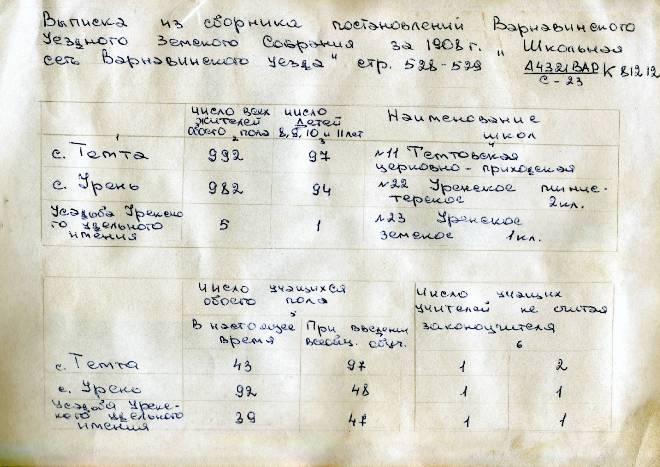 Выписка из сборника постановлений Варнавинского
Уездного Земского Собрания за 1908 г. „Школьная
сеть Варнавинского уезда" стр. 528-529 Д4321ВАР К 81212
С-23
число всех жителей обоего пола
число детей 8, 9, 10 и 11 лет
Наименование школ
1 2 3
с. Темта 992 97 №11 Темтовская
церковно-приходская
с. Урень 982 94 №22 Уренское минис-
терское 2кл.
Усадьба Уренско-
го удельного 5 1 №23 Уренское
имения земское 1кл.
Число учащихся
обоего пола
5
Число учащих
учителей не считая
законоучителя
6
В настоящее
время
При введении
всеобщ. обуч.
с. Темта 43 97 1 2
с. Урень 92 48 1 1
Усадьба Урен-
ского удельного 39 47 1 1
имения